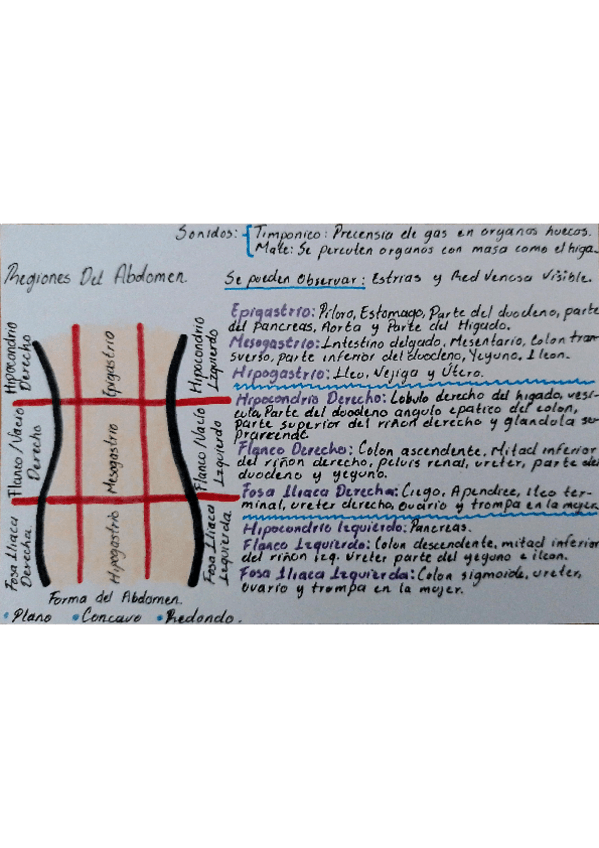 Sonidos:
Timponico: Precensia de gas en organos huecos.
Mate: Se percuten organos con masa como el higa.
Regiones Del Abdomen.
Se pueden Observar: Estrias y Red Venosa Visible.
Hipocondrio
Derecho
Epigastrio
Hipocondrio
Izquierdo
Flanco/Vacio
Derecho
Mesogastrio
Flanco/Vacio
Izquierdo
Fosa Iliaca
Derecha.
Hipogastrio
Fosa Iliaca
Izquierda.
Forma del Abdomen.
•Plano •Concavo •Redondo.
Epigastrio: Piloro, Estomago, Parte del duodeno, parte
del Pancreas, Aorta y Parte del Higado.
Mesogastrio: Intestino delgado, Mesentario, Colon tran-
sverso, parte inferior del duodeno, Yeyuno, Ileon.
Hipogastrio: Ileo, Vejiga y Utero.
Hipocondrio Derecho: Lobulo derecho del higado, vesi-
cula, Parte del duodeno angulo epatico del colon,
parte superior del riñon derecho y glandula su-
prarrenal.
Flanco Derecho: Colon ascendente, Mitad inferior
del riñon derecho, pelvis renal, ureter, parte del
duodeno y yeguno.
Fosa Iliaca Derecha: Ciego, Apendice, ileo ter-
minal, ureter derecho, ovario y trompa en la mujer.
Hipocondrio Izquierdo: Pancreas.
Flanco Izquierdo: Colon descendente, mitad inferior
del riñon izq. ureter parte del yeguno e ileon.
Fosa Iliaca Izquierda: Colon sigmoide, ureter,
ovario y trompa en la mujer.